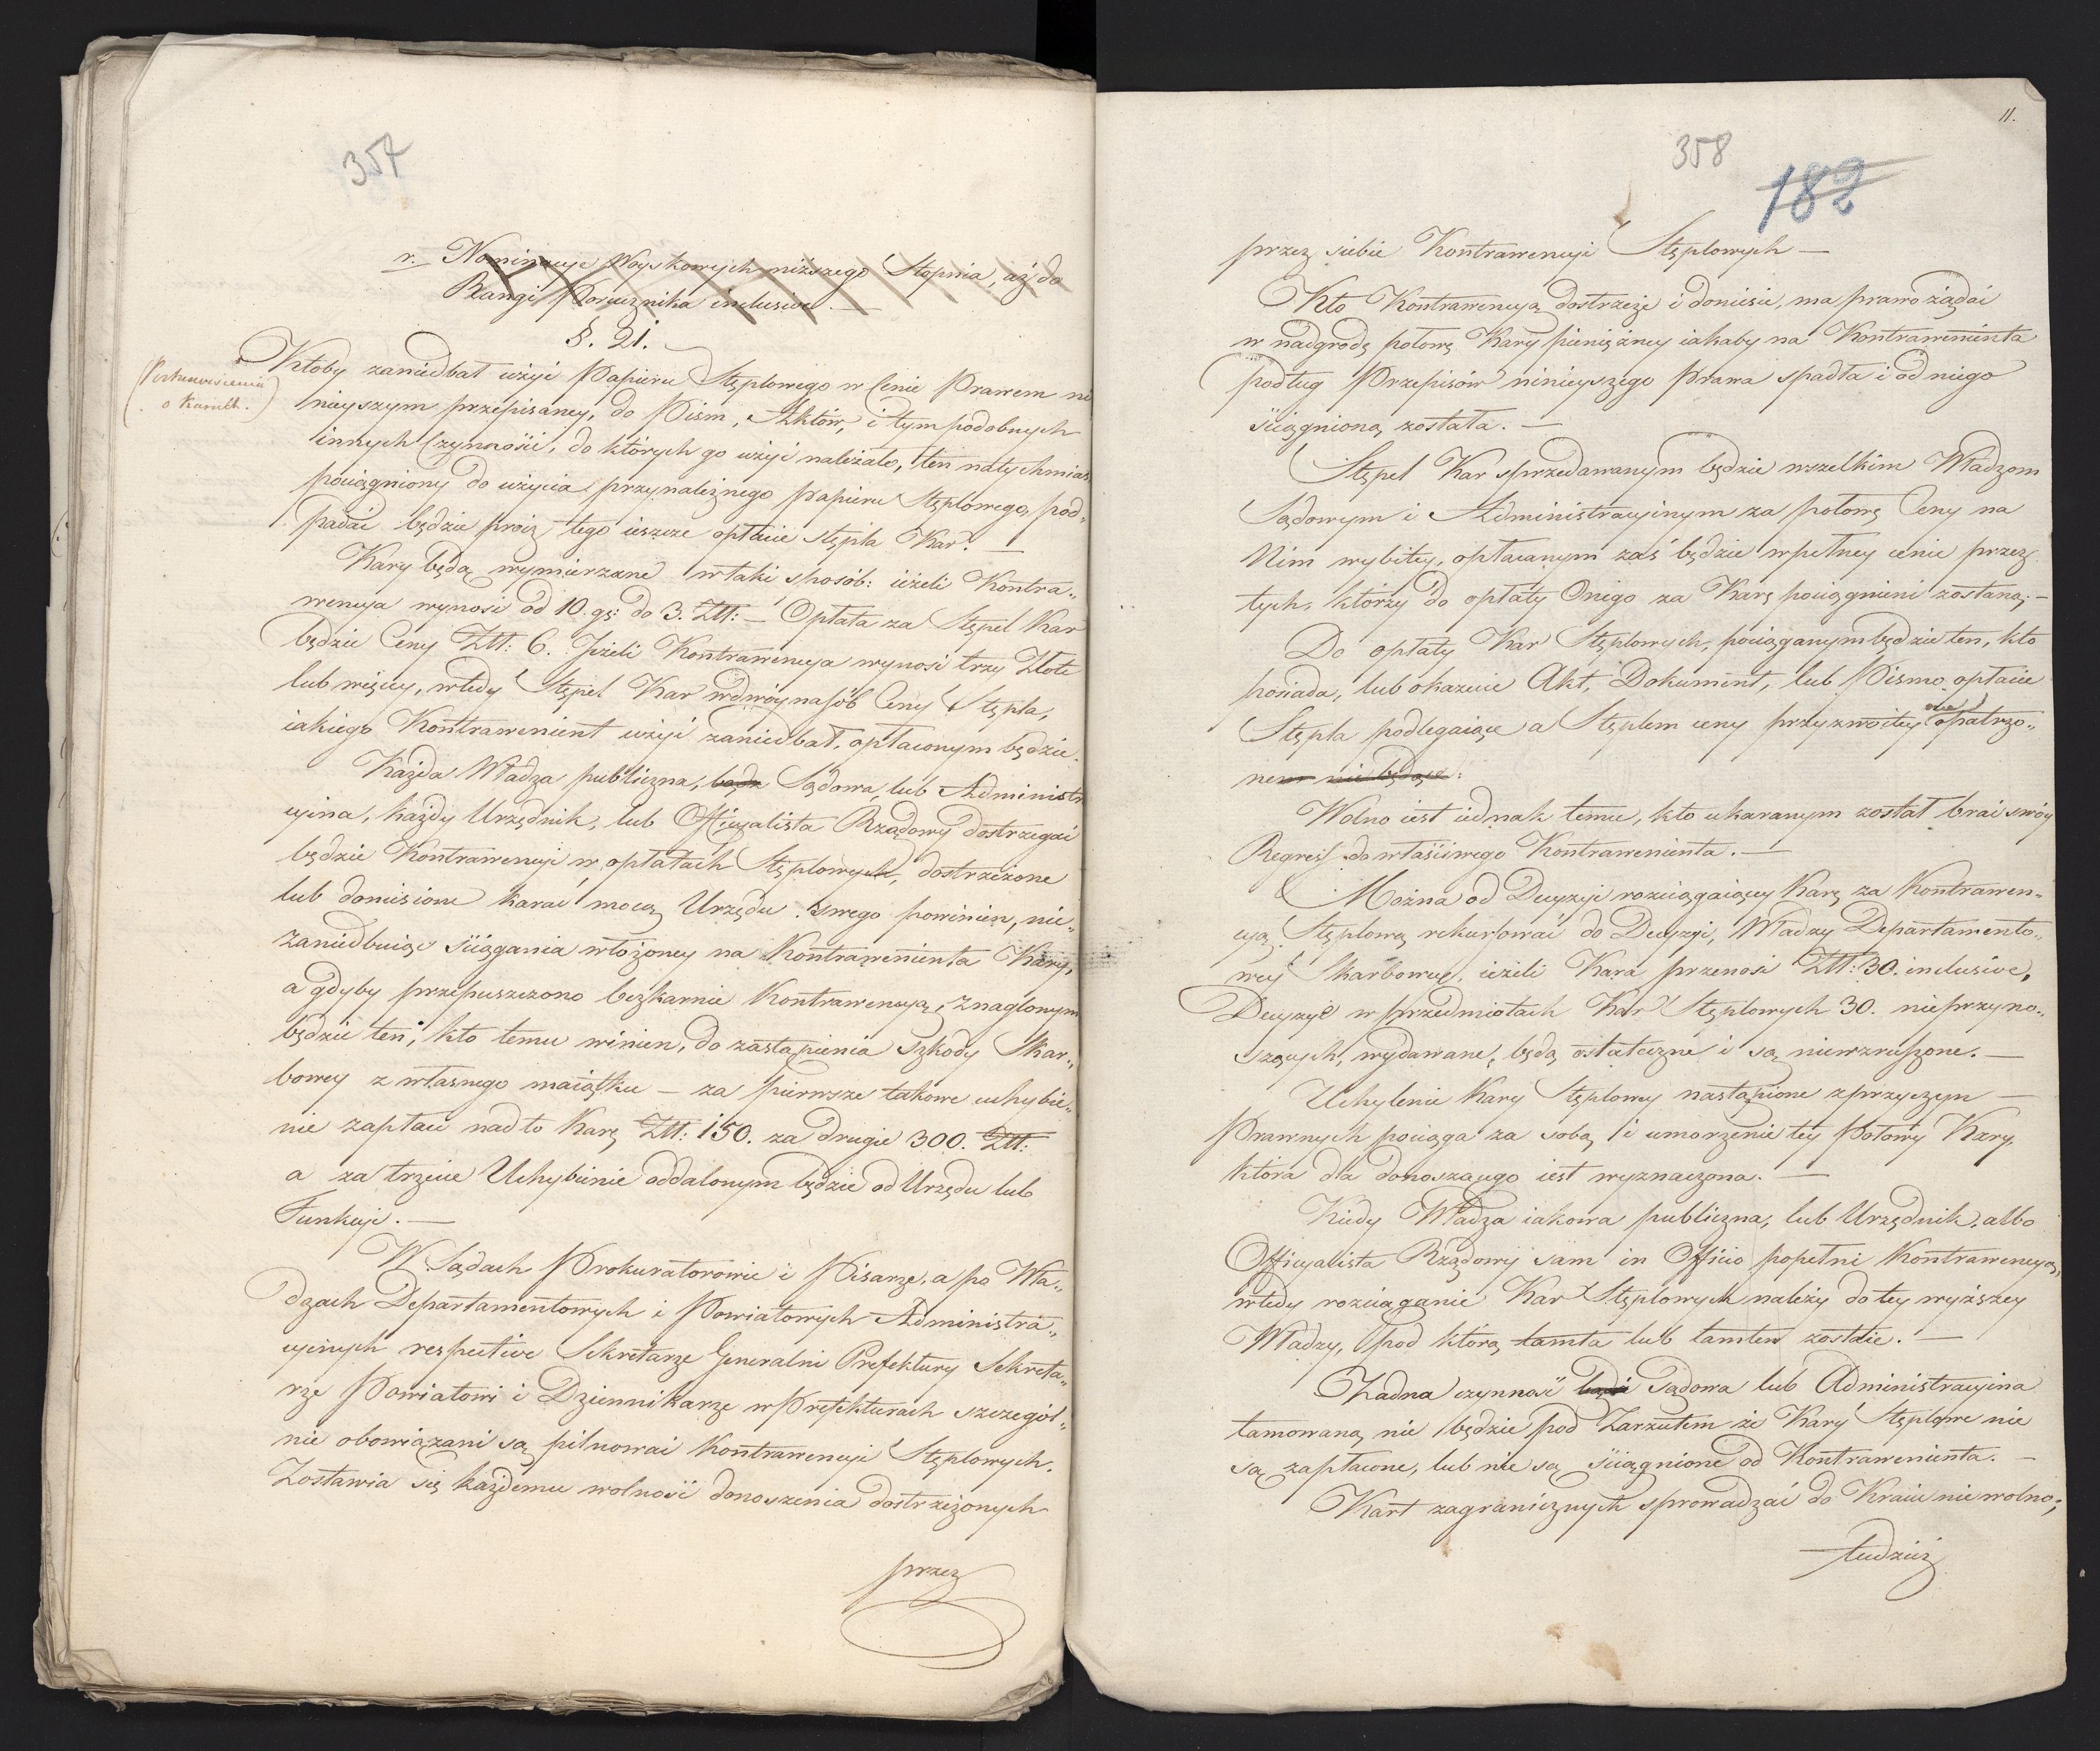 357
r. Nominacye Woyskowych niższego Stopnia, aż do
Rangi Porucznika inclusive. —
§. 21.
o karach.)
Ktoby zaniedbał użyć Papieru Stęplowego w Cenie Prawem ni
nieyszym przepisaney, do Pism, Aktów, i tym podobnych
innych Czynności, do których go użyć należało, ten natychmias
pociągniony do użycia przynależnego papieru Stęplowego, pod„
padać będzie procz tego ieszcze opłacie stępla Kar. —
Kary będą wymierzane w taki sposób: ieżeli Kontra„
wencya wynosi od 10. gs: do 3. Złł: — Opłata za Stępel Kar
będzie Ceny Złł: 6. Jeżeli Kontrawencya wynosi trzy Złote
lub więcey, wtedy Stępel Kar wdwóynasób Ceny Stępla,
iakiego Kontrawenient użyć zaniedbał, opłaconym będzie.
Każda Władza publiczna, bądz Sądowa, lub Administra
cyina, każdy Urzędnik, lub Officyalista Rządowy dostrzegać
będzie Kontrawencyi w opłatach Stęplowych, dostrzeżone
lub doniesione karać mocą Urzędu swego powinien, nie„
zaniedbuiąc ściągania włożoney na Kontrawenienta Kary,
a gdyby przepuszczono bezkarnie Kontrawencyą, znaglonym
będzie ten, kto temu winien, do zastąpienia szkody Skar„
bowey z własnego maiątku — za pierwsze takowe uchybie„
nie zapłaci nadto Karę Złł: 150. za drugie 300. Złł:
a za trzecie Uchybienie oddalonym będzie od Urzędu lub
Funkcyi. —
W Sądach Prokuratorowie i Pisarze, a po Wła„
dzach Departamentowych i Powiatowych Administra„
cyinych respective Sekretarze Generalni Prefektury Sekreta„
rze Powiatowi i Dziennikarze w Prefekturach szczegól„
nie obowiązani są pilnować Kontrawencyi Stęplowych.
Zostawia się każdemu wolność donoszenia dostrzeżonych
przez
11.
358
182
przez siebie Kontrawencyi Stęplowych —
Kto Kontrawencyą dostrzeże i doniesie, ma prawo żądać
w nadgrodę połowę Kary pieniężney iakaby na Kontrawenienta
podług Przepisów ninieyszego Prawa spadła i od niego
ściągnioną została. —
Stępel Kar sprzedawanym będzie wszelkim Władzom
Sądowym i Administracyinym za połowę Ceny na
Nim wybitey, opłacanym zaś będzie w pełney cenie przez
tych, którzy do opłaty Onego za Karę pociągnieni zostaną; —
Do opłaty Kar Stęplowych, pociąganym będzie ten, kto
posiada, lub okazuie Akt, Dokument, lub Pismo opłacie
Stępla podlegaiące a Stęplem ceny przyzwoitey opatrzo„
nem nie będące:
Wolno iest iednak temu, kto ukaranym został brać swóy
Regress do właściwego Kontrawenienta. —
Można od Decyzyi rozciągaiącey Karę za Kontrawen„
cyą Stęplową rekursować do Decyzyi, Władzy Departamento„
wey Skarbowey, ieżeli Kara przenosi Złł: 30. inclusive,
Decyzye w przedmiotach Kar Stęplowych 30. nieprzyno„
szących, wydawane, będą ostateczne i są niewzruszone. —
Uchylenie Kary Stęplowey nastąpione z przyczyn —
Prawnych pociąga za sobą i umorzenie tey Połowy Kary,
która dla donoszącego iest wyznaczona. —
Kiedy Władza iakowa publiczna, lub Urzędnik, albo
Officyalista Rządowy sam in Officio popełni Kontrawencyą,
wtedy rozciąganie Kar Stęplowych należy do tey wyższey
Władzy, pod którą tamta lub tamten zostaie. —
Żadna czynność bądź Sądowa lub Administracyina
tamowaną nie będzie pod Zarzutem że Kary Stęplowe nie
są zapłacone, lub nie są ściągnione od Kontrawenienta. —
Kart zagranicznych sprowadzać do Kraiu nie wolno;
tudzież